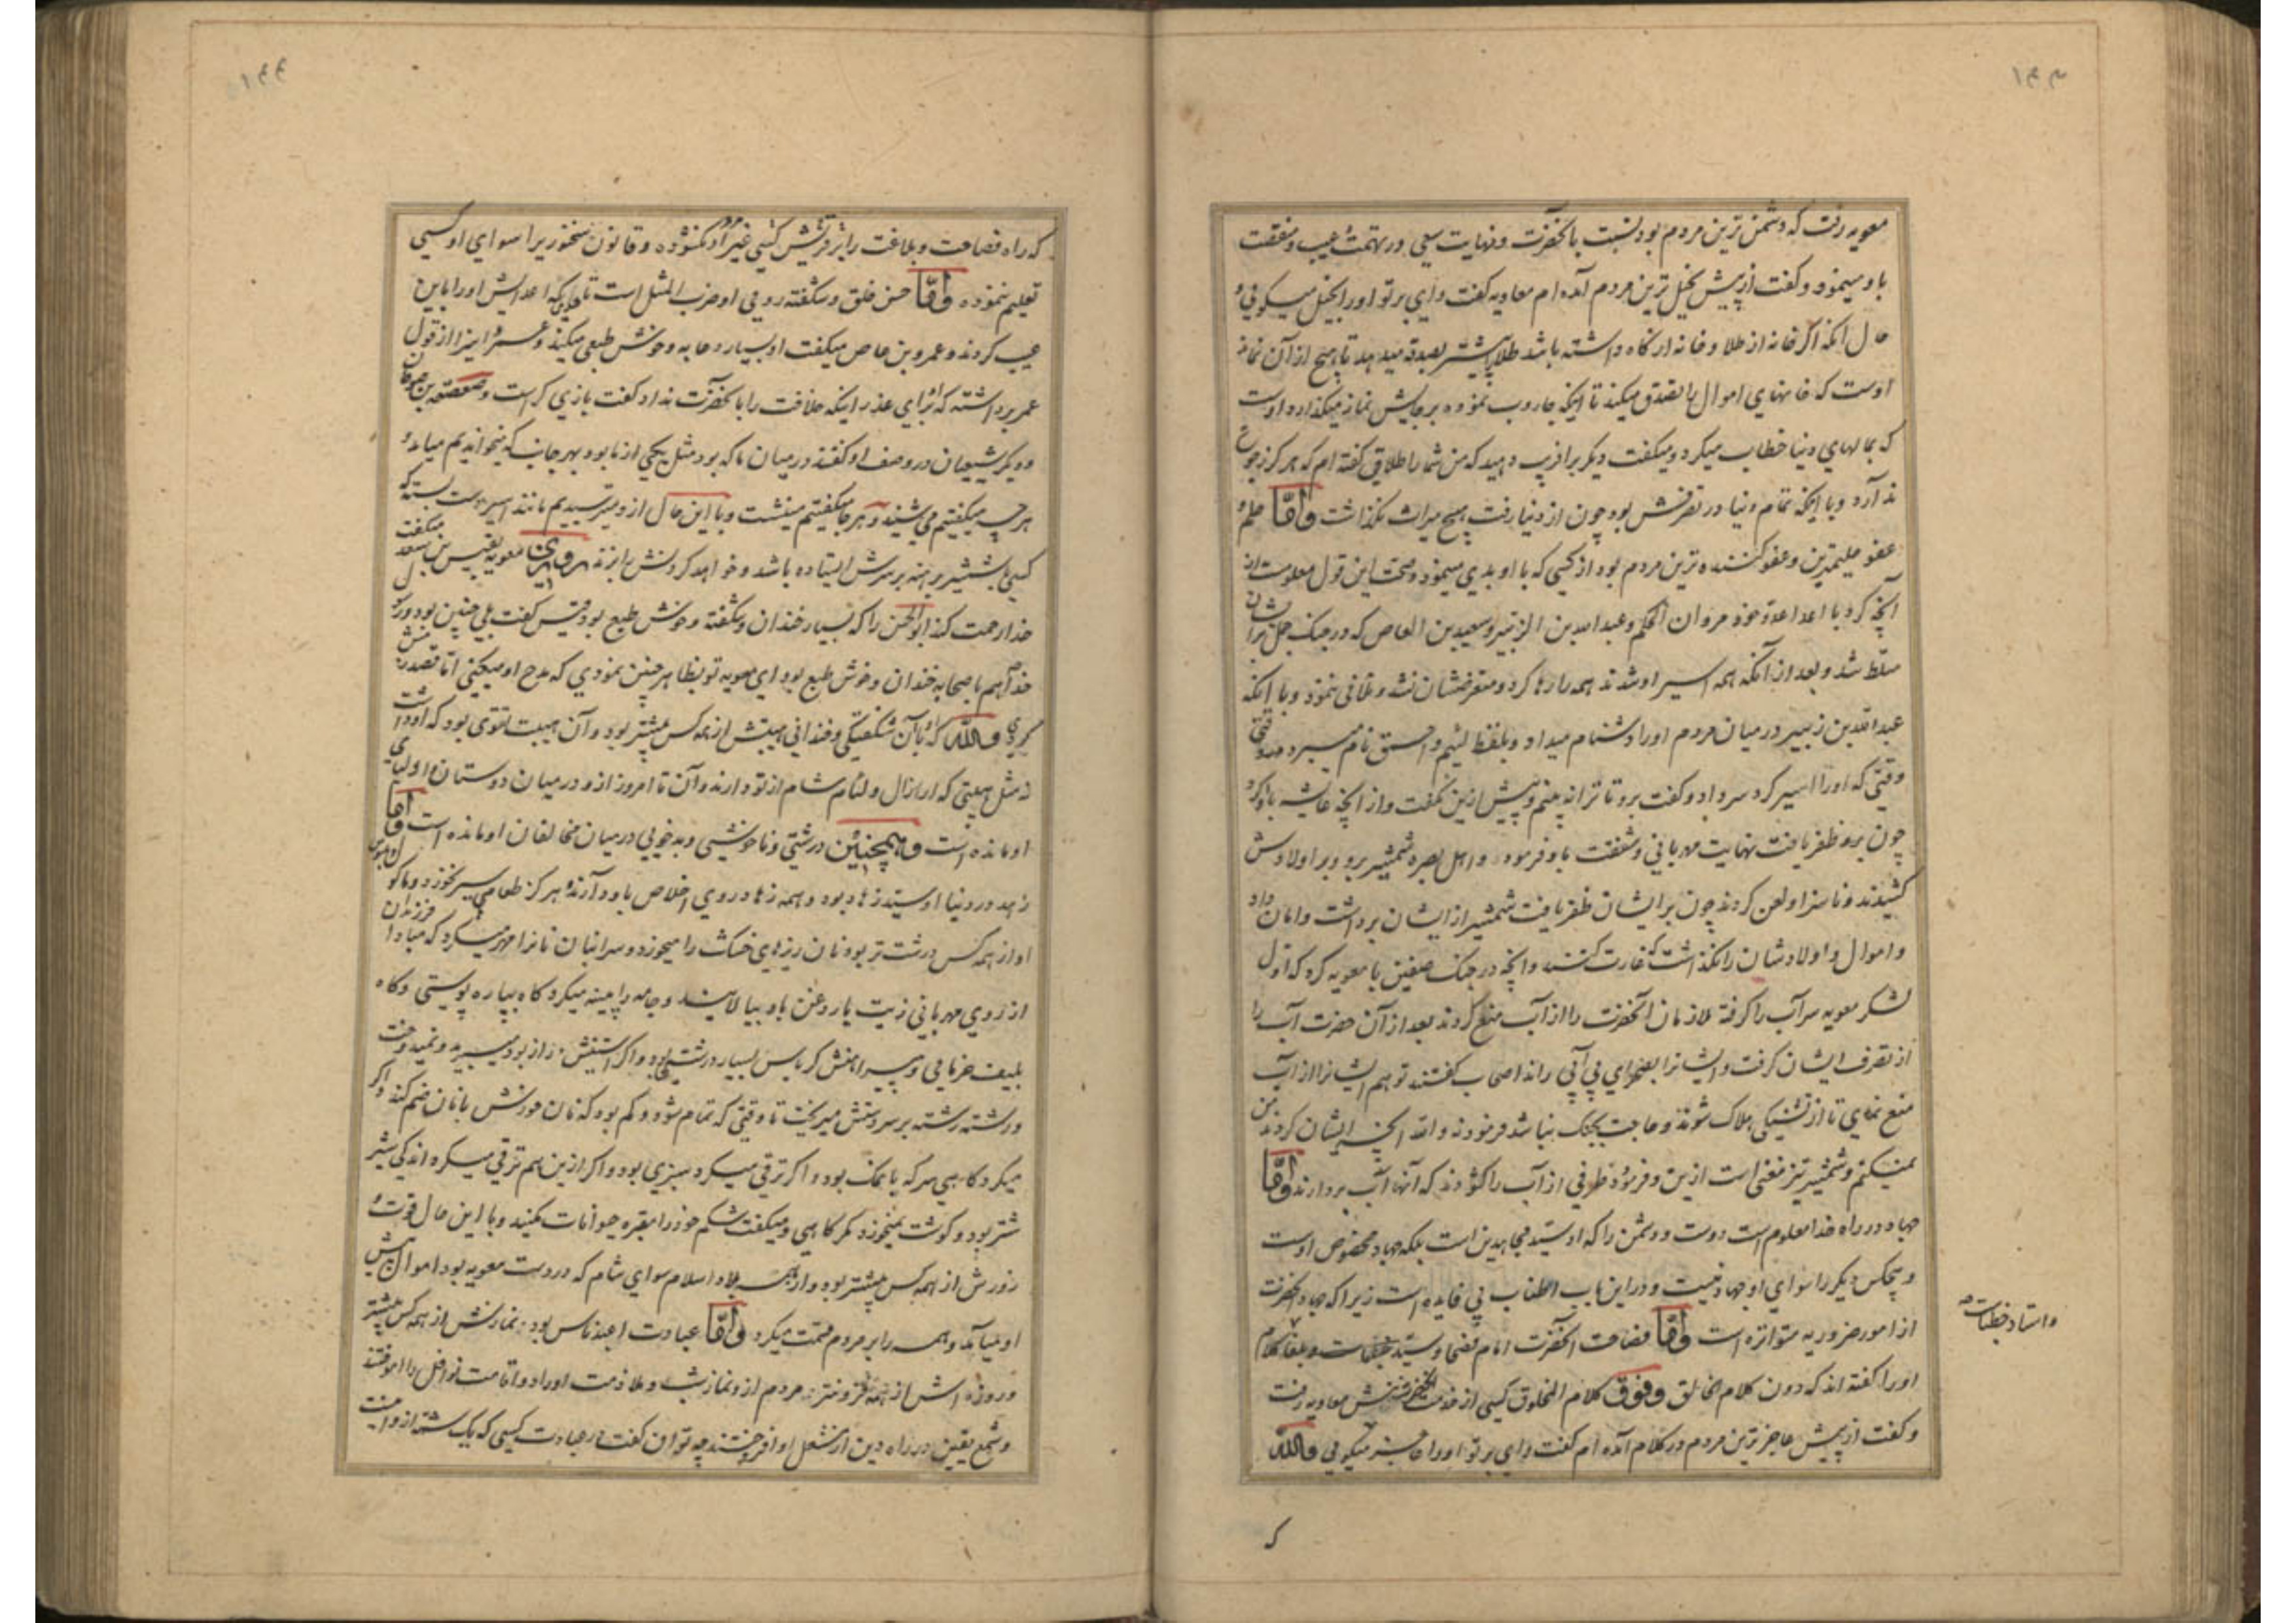 معویه رفت که دشمن ترین مردم بود نسبت بآنحضرت ونهایت سعی در تهمت عیب و منقصت
باو مینمود و گفت از پیش بخیل ترین مردم آمده ام معاویه گفت وای بر تو اورا بخیل میگوئی و
حال آنکه اگر خانه از طلا و خانه از کاه داشته باشد طلا را پیشتر بصدقه میدهد تا هیچ از آن نماند
اوست که خانهای اموال را تصدق میکند تا اینکه جاروب نموده بر جایش نماز میگذارد و اوست
که بمالهای دنیا خطاب میکرد و میگفت دیگر برا فریب دهید که من شما را طلاقی گفته ام که هرگز رجوع
ندارد وبا اینکه تمام دنیا در تصرفش بود چون از دنیا رفت هیچ میراث نگذاشت وامّا حلم و
عفو حلیمترین وعفو کننده ترین مردم بود از کسی که با او بدی مینمود وصحت این قول معلومست از
آنچه کرد با اعدا عدو خود مروان الحکم وعبدالله بن الزبیر وسعید بن العاص که در جنک جمل برایشان
مسلط شد و بعد از آنکه همه اسیر او شدند همه را رها کرد و متعرضشان نشد و تلافی ننمود وبا آنکه
عبدالله بن زبیر در میان مردم اورا دشنام میداد وبلفظ لئیم و احمق نام میبرد
وقتی که اورا اسیر کرد سر داد و گفت برو تا ترا نه بینم و پیش ازین نگفت واز آنچه عایشه باو کرد
چون برو ظفر یافت نهایت مهربانی وشفقت باو فرمود و اهل بصره شمشیر برو و بر اولادش
کشیدند وناسزا ولعن کردند چون بر ایشان ظفر یافت شمشیر از ایشان برداشت وامان داد
و اموال و اولادشان را نگذاشت که غارت کنند وآنچه در جنک صفین با معویه کرد که اول
لشکر معویه سر آب را گرفته ملازمان آنحضرت را از آب منع کردند بعد از آن حضرت آب را
از تصرف ایشان گرفت و ایشانرا بصحرای بی آبی راند اصحاب گفتند تو هم ایشانرا از آب
منع نمای تا از تشنگی هلاک شوند و حاجت بجنک نباشد فرمود نه والله آنچه ایشان کردند من
نمیکنم وشمشیر تیز مغنی است ازین و فرمود طرفی از آب را گشودند که آنها آب بردارند وامّا
جهاد در راه خدا معلوم است دوست و دشمن را که او سید مجاهدین است بلکه جهاد مخصوص اوست
وهیچکس دیگر را سوای او جهاد نیست و در این باب اطناب بی فایده است زیرا که جهاد آنحضرت
از امور ضروریه متواتره است وامّا فصاحت آنحضرت امام فصحا وسید بلغا
واستاد خطبات
اورا گفته اند که دون کلام الخالق وفوق کلام المخلوق کسی از خدمت آنحضرت پیش معاویه رفت
وگفت از پیش عاجز ترین مردم در کلام آمده ام گفت وای بر تو اورا عاجز میگوئی والله
که
که راه فصاحت وبلاغت را بر قریش کسی غیر او نگشوده و قانون سخنوریرا سوای او کسی
تعلیم ننموده وامّا حسن خلق و شگفته روئی او ضرب المثل است تا بحدیکه اعدایش اورا باین
عیب کردند وعمرو بن عاص میگفت او بسیار دعابه و خوش طبعی میکند وعمرو اینرا از قول
عمر برداشته که او برای عذر اینکه خلافت را بآنحضرت نداد گفت بازی گر است وصعصعة بن صوحان
ودیگر شیعیان در وصف او گفتند در میان ما که بود مثل یکی از ما بود بهر جانب که میخواندیم میامد و
هرچه میگفتیم می شنید و هر جا میگفتیم می نشست وبا این حال ازو میترسیدیم مانند اسیر دست بسته که
کسی با شمشیر برهنه بر سرش ایستاده باشد وخواهد گردنش را بزند مرویست معویه بقیس بن سعد میگفت
خدا رحمت کند ابوالحسن را که بسیار خندان و شگفته و خوش طبع بود قیس گفت بلی چنین بود و رسول
خدا هم با صحابه خندان وخوش طبع بود ای معویه تو بظاهر چنین نمودی که مدح او میکنی اما قصد ذمش
کردی والله که او با آن شگفتگی وخندانی هیبتش از همه کس بیشتر بود و آن هیبت تقوی بود که او داشت
نه مثل هیبتی که اراذل و لئام شام از تو دارند وآن تا امروز ازو در میان دوستان و اولیای
او مانده است وهمچنین درشتی و ناخوشی و بدخوئی در میان مخالفان او مانده است وامّا
زهد در دنیا او سید زهاد بود و همه زهاد روی اخلاص باو دارند و هرگز طعامی سیر نخورد و ماکول و ملبوس
او از همه کس درشت تر بود نان ریزهای خشک را میخورد و سر انبان نانرا مهر میکرد که مبادا فرزندان
از روی مهربانی زیت یا روغن باو بیالایند وجامه را پینه میکرد گاه بپاره پوستی وگاه
بلیف خرمائی و پیراهنش کرباس بسیار درشتی بود و اگر آستینش دراز بود میبرید و نمیدوخت
و رشته رشته بر سر دستش میریخت تا وقتی که تمام شود و کم بود که نان خورش با نان ضم کند و اگر
میکرد گاهی سرکه یا نمک بود و اگر ترقی میکرد سبزی بود و اگر ازین هم ترقی میکرد اندکی شیر
شتر بود و گوشت نمیخورد مگر گاهی ومیگفت شکم خود را مقبره حیوانات مکنید وبا این حال قوت و
زورش از همه کس بیشتر بود و از همه بلاد اسلام سوای شام که در دست معویه بود اموال پیش
او میآمد وهمه را بر مردم قسمت میکرد وامّا عبادت اعبد ناس بود نمازش از همه کس بیشتر
و روزه اش از همه فزونتر مردم ازو نماز شب و ملازمت اوراد و اقامت نوافل را آموختند
و شمع یقین در راه دین از مشعل او افروختند چه توان گفت در عبادت کسی که